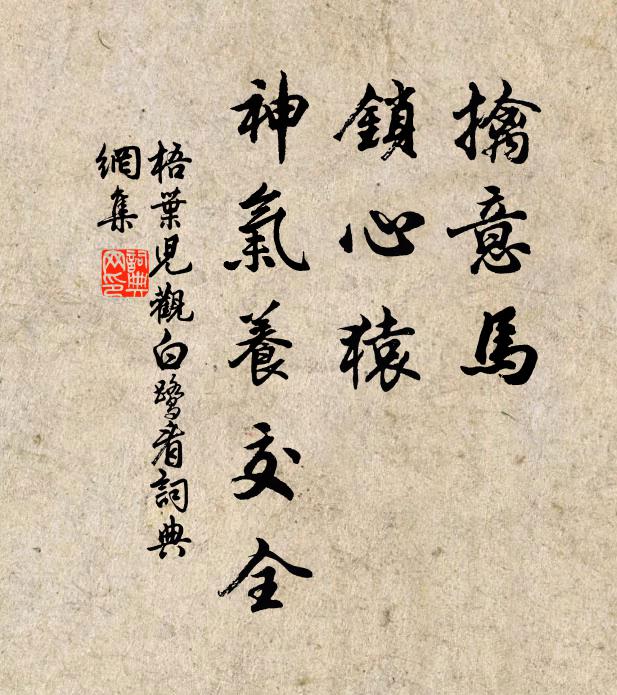 擒意馬
鎖心猿
神氣養交全
梧葉児觀白鹭者詞典
網集
詞典網印